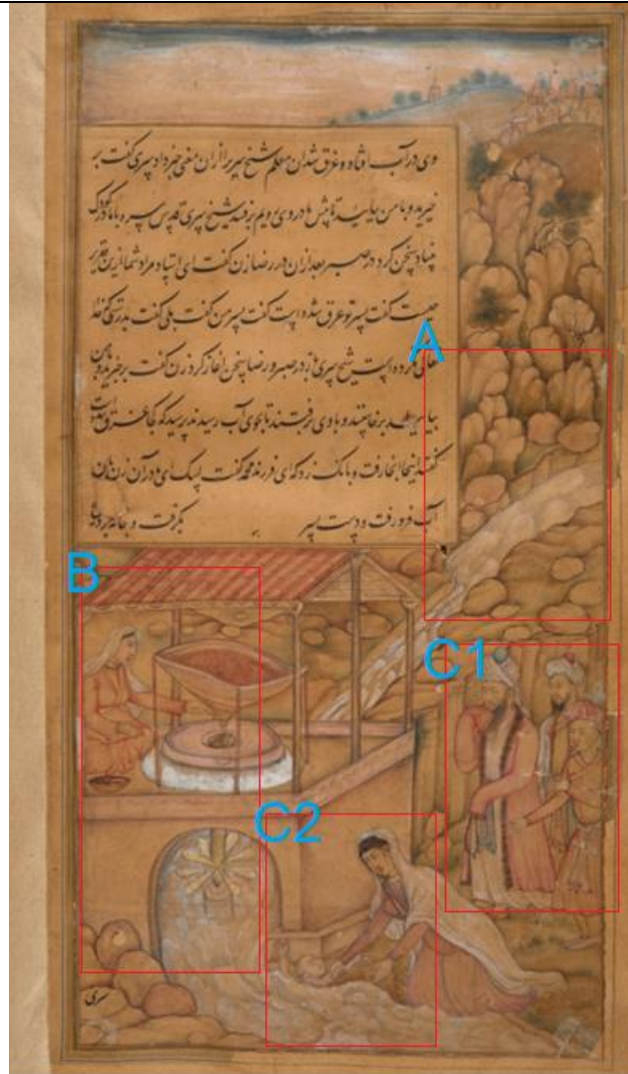 وی در آب افتاد و غرق شد آن معلم شیخ سریرا از آن معنی خبر داد سری گفت بر
خیزید و با من بیایید تا پیش مادر وی رویم برفتند شیخ سری قدس سره با مادر کودک
بنیاد سخن کرد در صبر بعد از آن در رضا زن گفت ای استاد مراد شما ازین تقریر
چیست گفت پسر تو غرق شده است گفت پسر من گفت بلی گفت بدرستی که خدا
A
تعالی نکرده است شیخ سری باز در صبر و رضا سخن آغاز کرد زن گفت برخیزید و با من
بیایید برخاستند و با وی برفتند تا بجوی آب رسیدند پرسید که کجا غرق شده است
گفتند اینجا آنجا رفت و بانگ زد که ای فرزند محمد گفت لبیک ای مادر آن زن بآن
آب فرو رفت و دست پسر بگرفت و بخانه برد
B
C1
C2